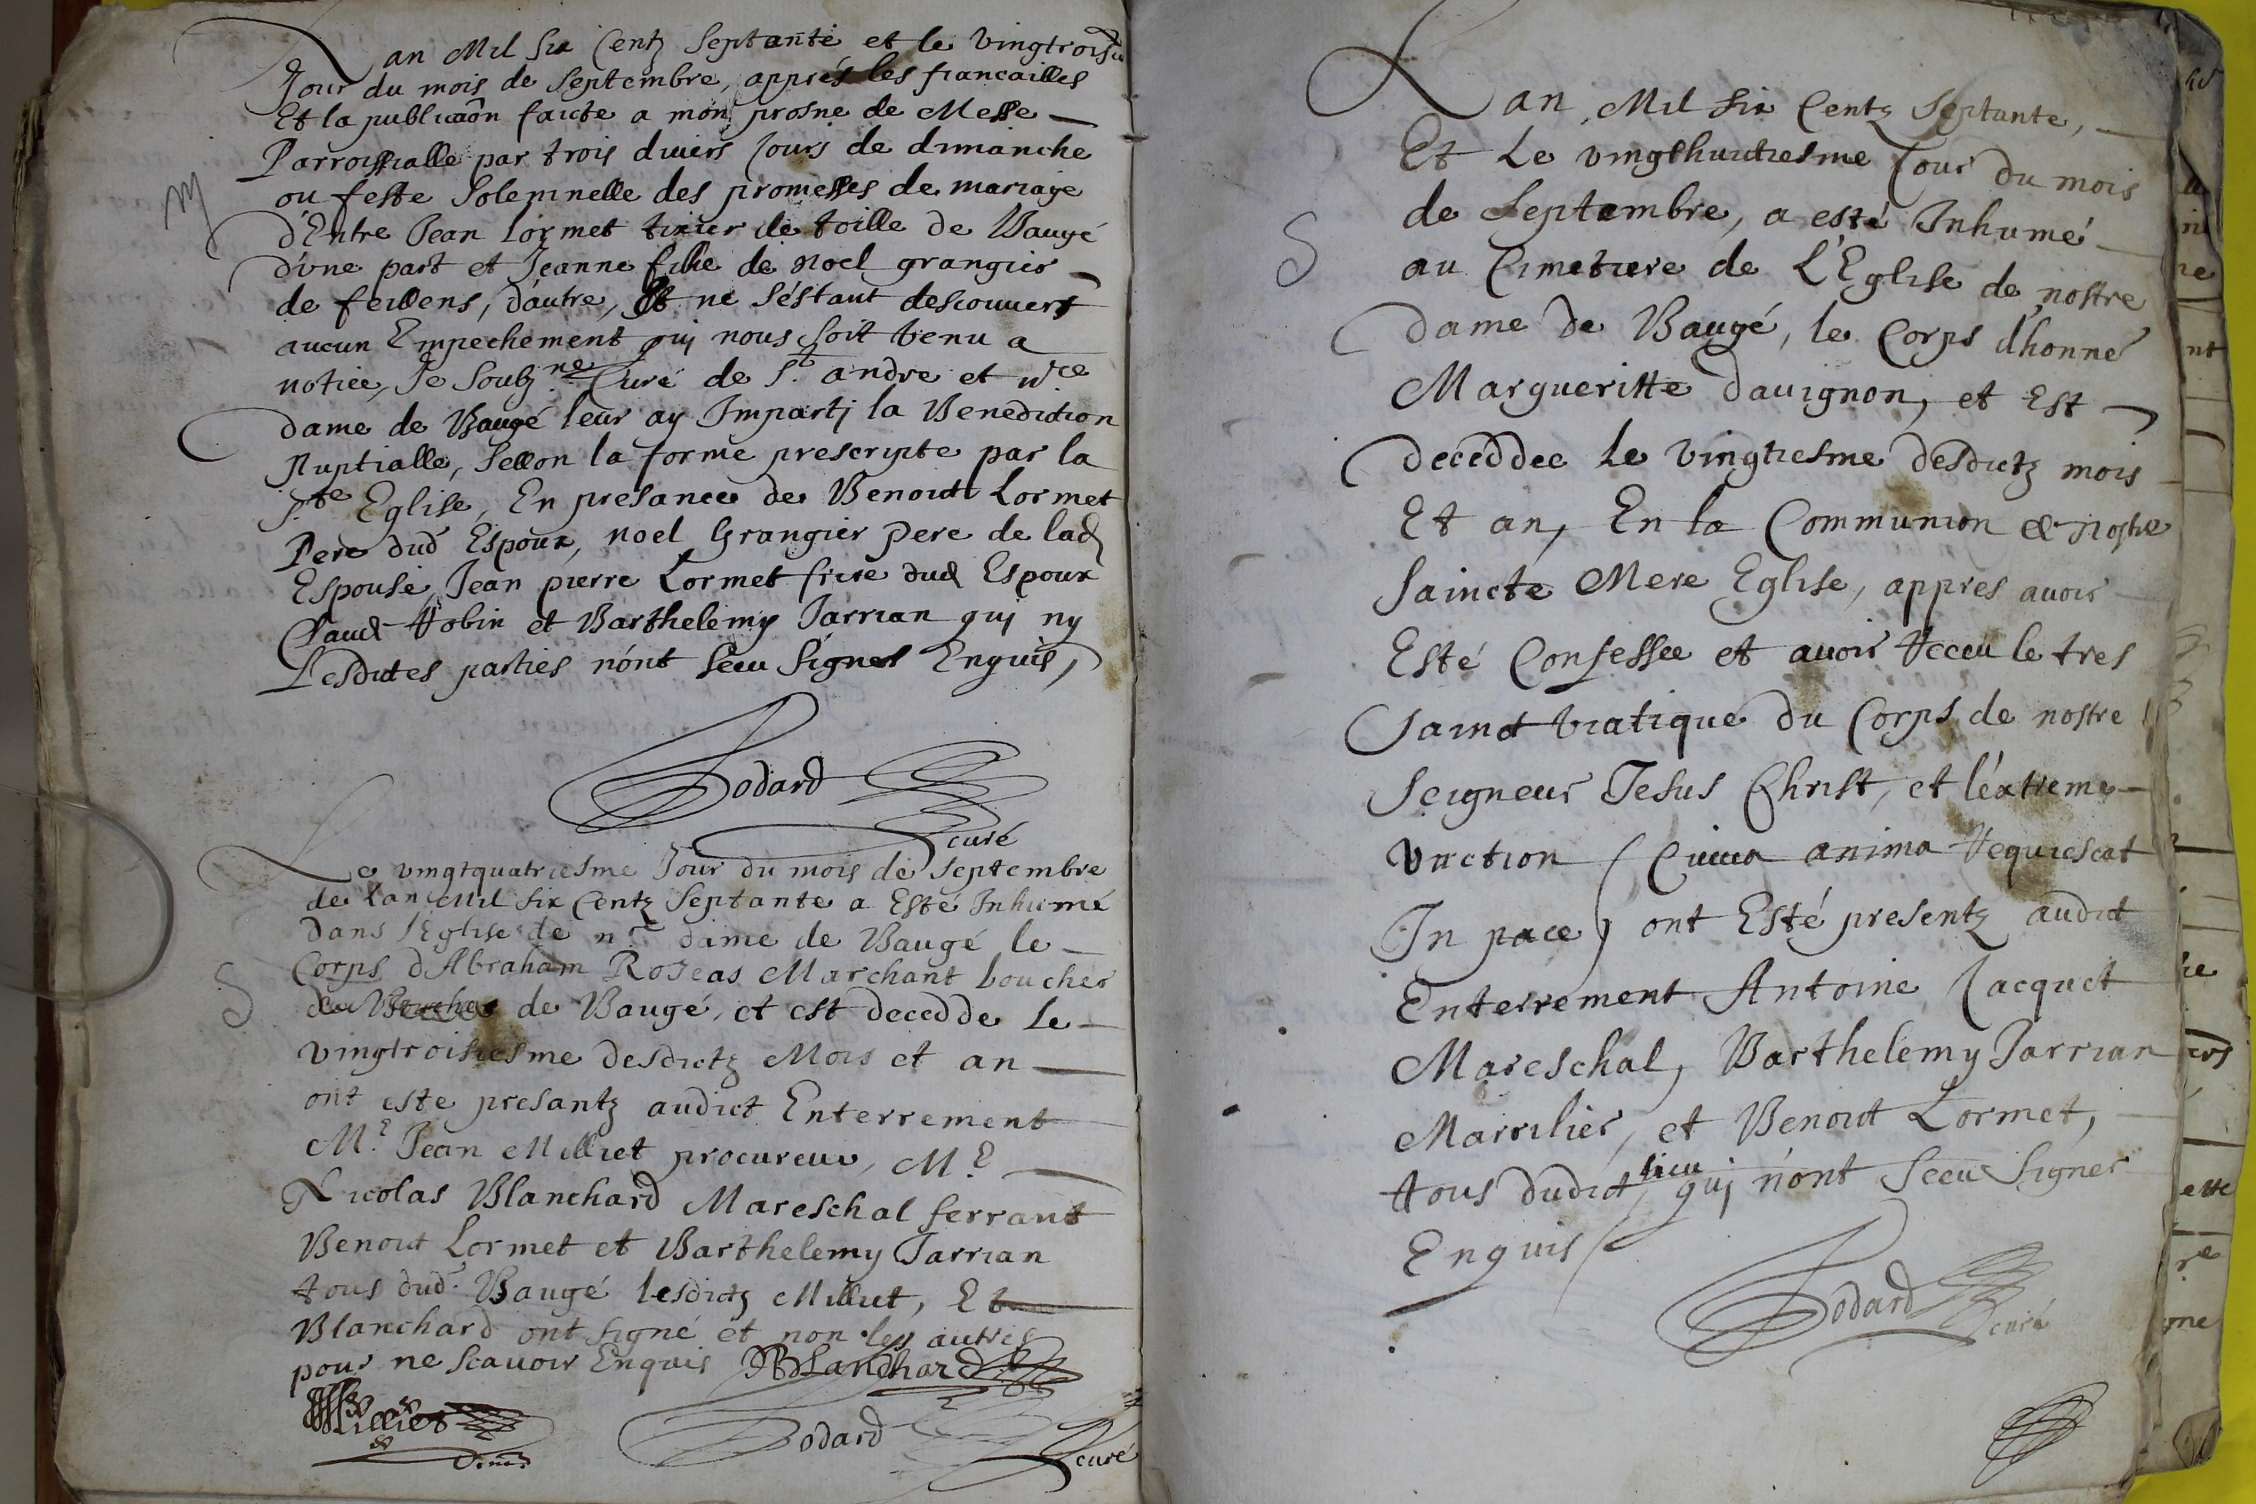 Lan Mil Six Centz Septante et le vingtroisie
Jour du mois de Septembre, apprés les fiancailles
Et la publicaôn faicte a mon prosne de Messe
Parroissialle par trois divers Jours de dimanche
ou feste Solemnelle des promesses de mariage
d'Entre Jean Lormet tixier de toille de Baugé
d'une part et Jeanne fille de noel grangier
de feillens, d'autre, Et ne s'éstant descouvert
aucun Empechement qui nous soit venu a
notice, Je Soubz.ne Curé de S.t andre et n.re
dame de Baugé leur ay Imparti la Benediction
Nuptialle, Sellon la forme prescripte par la
S.te Eglise, En presance de Benoict Lormet
Pere dud Espoux, noel Grangier Pere de lad
Espouse, Jean pierre Lormet frere dud Espoux
Claud Robin et Barthelemy Jarrian qui ny
Lesdictes parties n'ont sceu signer Enquis,
Bodard
curé
m
Le vingtquatriesme Jour du mois de Septembre
de Lan Mil Six Centz Septante a Esté Inhumé
Dans l'Eglise de n.re dame de Baugé le
Corps d'Abraham Roseas Marchant boucher
de Baugé, et est decedde Le
vingtroisiesme desdictz Mois et an
ont este presantz audict Enterrement
M.e Jean Milliet procureur, M.e
Nicolas Blanchard Mareschal ferrant
Benoict Lormet et Barthelemy Jarrian
tous dud. Baugé lesdictz Milliet, Et
Blanchard ont signé et non les autres
pour ne scavoir Enquis Blanchard
Milliet
Bodard
curé
S
Lan Mil Six Centz Septante,
Et Le vingthuictiesme Jour du mois
de Septembre, a esté Inhumé
au Cimetiere de L'Eglise de nostre
dame de Baugé, le Corps d'honné
Margueritte Davignon, et Est
deceddee Le vingtiesme desdictz mois
Et an, En la Communion de nostre
Saincte Mere Eglise, appres avoir
Esté Confessee et avoir Receu le tres
Sainct viatique du Corps de nostre
Seigneur Jesus Christ, et l'éxtreme
Unction (Cuius anima Requiescat
In pace) ont Esté presentz audict
Enterrement Antoine Jacquet
Mareschal, Barthelemy Jarrian
Marrilier, et Benoict Lormet,
tous dudict lieu qui n'ont sceu Signer
Enquis
Bodard
curé
S